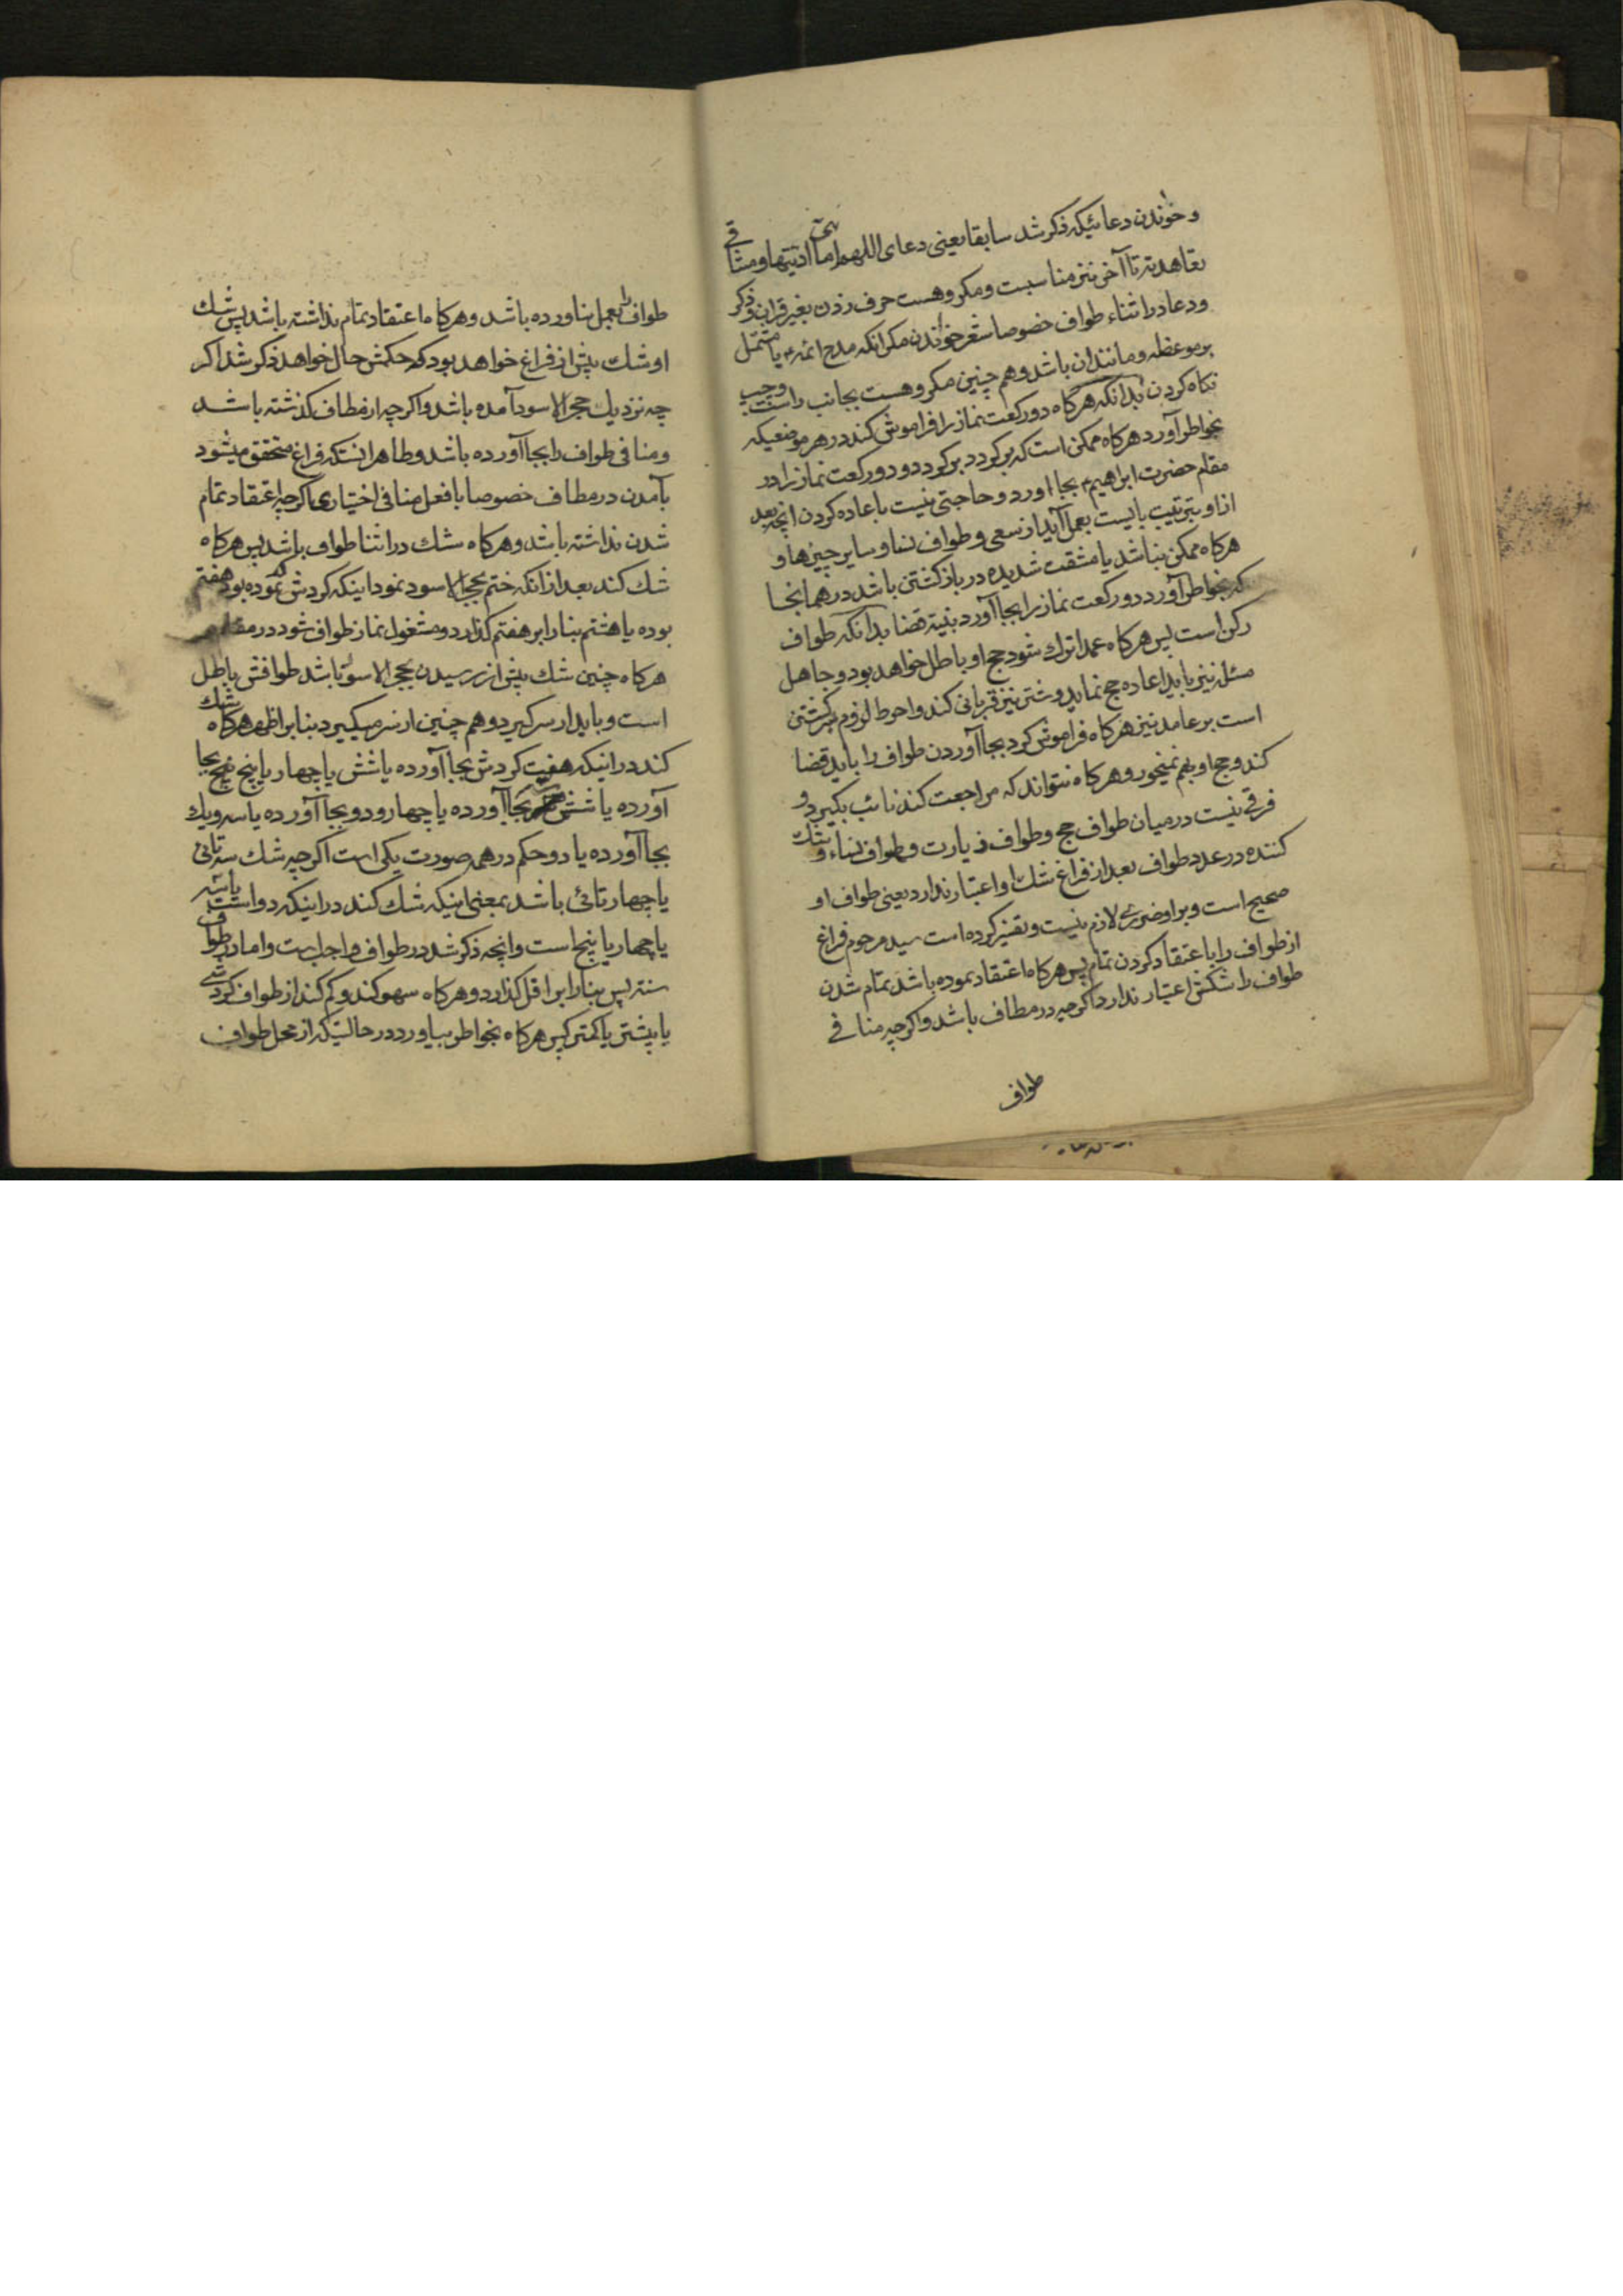 و خوندن دعائیکه ذکر شد سابقا یعنی دعای اللهم امانتی ادیتها و میثاقی
تعاهدته تا آخر نیز مناسبت و مکروهست حرف زدن بغیر قران و ذکر
و دعا در اثناء طواف خصوصا شعر خواندن مکر انکه مدح ائمه ع یا مشتمل
بر موعظه و مانند ان باشد و هم چنین مکروهست بجانب راست و چپ
نکاه کردن بدانکه هر گاه دو رکعت نماز را فراموش کند در هر موضعیکه
بخواطر آورد هرکاه ممکن است که بر کردد بر کردد و دو رکعت نماز را در
مقام حضرت ابراهیم ع بجا اورد و حاجتی نیست باعاده کردن انچه بعد
از او بترتیب بایست بعمل آید از سعی و طواف نسا و سایر چیزها و
هرکاه ممکن نباشد یا مشقت شدیده در باز کشتن باشد در همانجا
که بخواطر آورد دو رکعت نماز را بجا آورد بنیة قضا بدانکه طواف
رکن است پس هرکاه عمدا ترك شود حج او باطل خواهد بود و جاهل
مسئله نیز باید اعاده حج نماید و شتر نیز قربانی کند و احوط لزوم شتر کشتن
است بر عامد نیز هرکاه فراموش کرد بجا آوردن طواف را باید قضا
کند و حج او بهم نمیخورد و هرکاه نتواند که مراجعت کند نائب بکیرد و
فرقی نیست در میان طواف حج و طواف زیارت و طواف نساء و شك
کننده در عدد طواف بعد از فراغ شك او اعتبار ندارد یعنی طواف او
صحیح است و بر او ضرری لازم نیست و تفسیر کرده است سید مرحوم فراغ
از طواف را باعتقاد کردن تمام پس هرکاه اعتقاد نموده باشد تمام شدن
طواف را شکش اعتبار ندارد اکرچه در مطاف باشد و اکرچه منافی
طواف
طواف را بعمل نیاورده باشد و هرکاه اعتقاد تمام نداشته باشد پس شك
او شك پیش از فراغ خواهد بود که حکمش حال خواهد ذکر شد اکر
چه نزدیك حجر الاسود آمده باشد و اکرچه از مطاف کذشته باشد
و منافی طواف را بجا آورده باشد و ظاهر انستکه فراغ متحقق میشود
بآمدن در مطاف خصوصا با فعل منافی اختیاری اکرچه اعتقاد تمام
شدن نداشته باشد و هرکاه شك در اثنا طواف باشد پس هرکاه
شك کند بعد از انکه ختم بحجر الاسود نمود اینکه کردش که نموده بود هفتم
بوده یا هشتم بنا را بر هفتم کذارد و مشغول نماز طواف شود در مقام
هرکاه چنین شك پیش از رسیدن بحجر الاسود باشد طوافش باطل
است و باید از سر کیرد و هم چنین از سر میکیرد بنابر اظهر هرکاه شك
کند در اینکه هفت کردش بجا آورده یا شش یا چهار یا پنج بجا
آورده یا شش بجا آورده یا چهار و دو بجا آورده یا سه و یك
بجا آورده یا دو حکم در همه صورت یکی است اکرچه شك سه تائی
یا چهار تائی باشد بمعنی اینکه شك کند در اینکه دو است یا سه
یا چهار یا پنج است و انچه ذکر شد در طواف واجب است و اما در طواف
سنته پس بنا را بر اقل کذارد و هرکاه سهو کند و کم کند از طواف کردشی
یا پیشتر یا کمتر پس هرکاه بخواطر بیاورد در حالتیکه از محل طواف